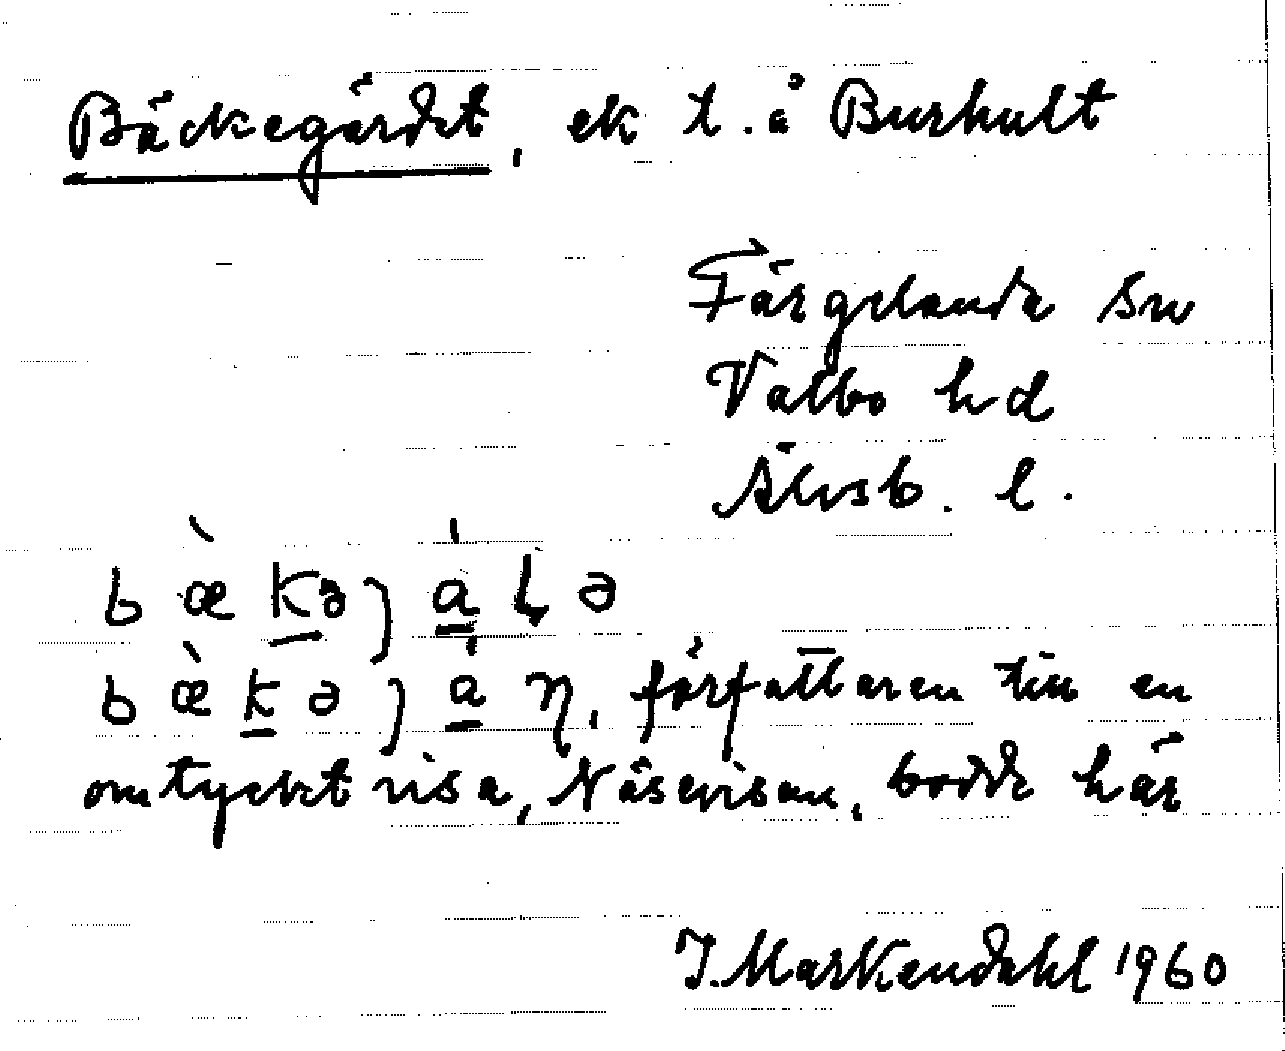 Bäckegärdet, ek t. å Burhult
Färgelanda sn
Valbo hd
Älvsb. l.
författaren till en
omtyckt visa, Näsevisan, bodde här
J. Markendahl 1960